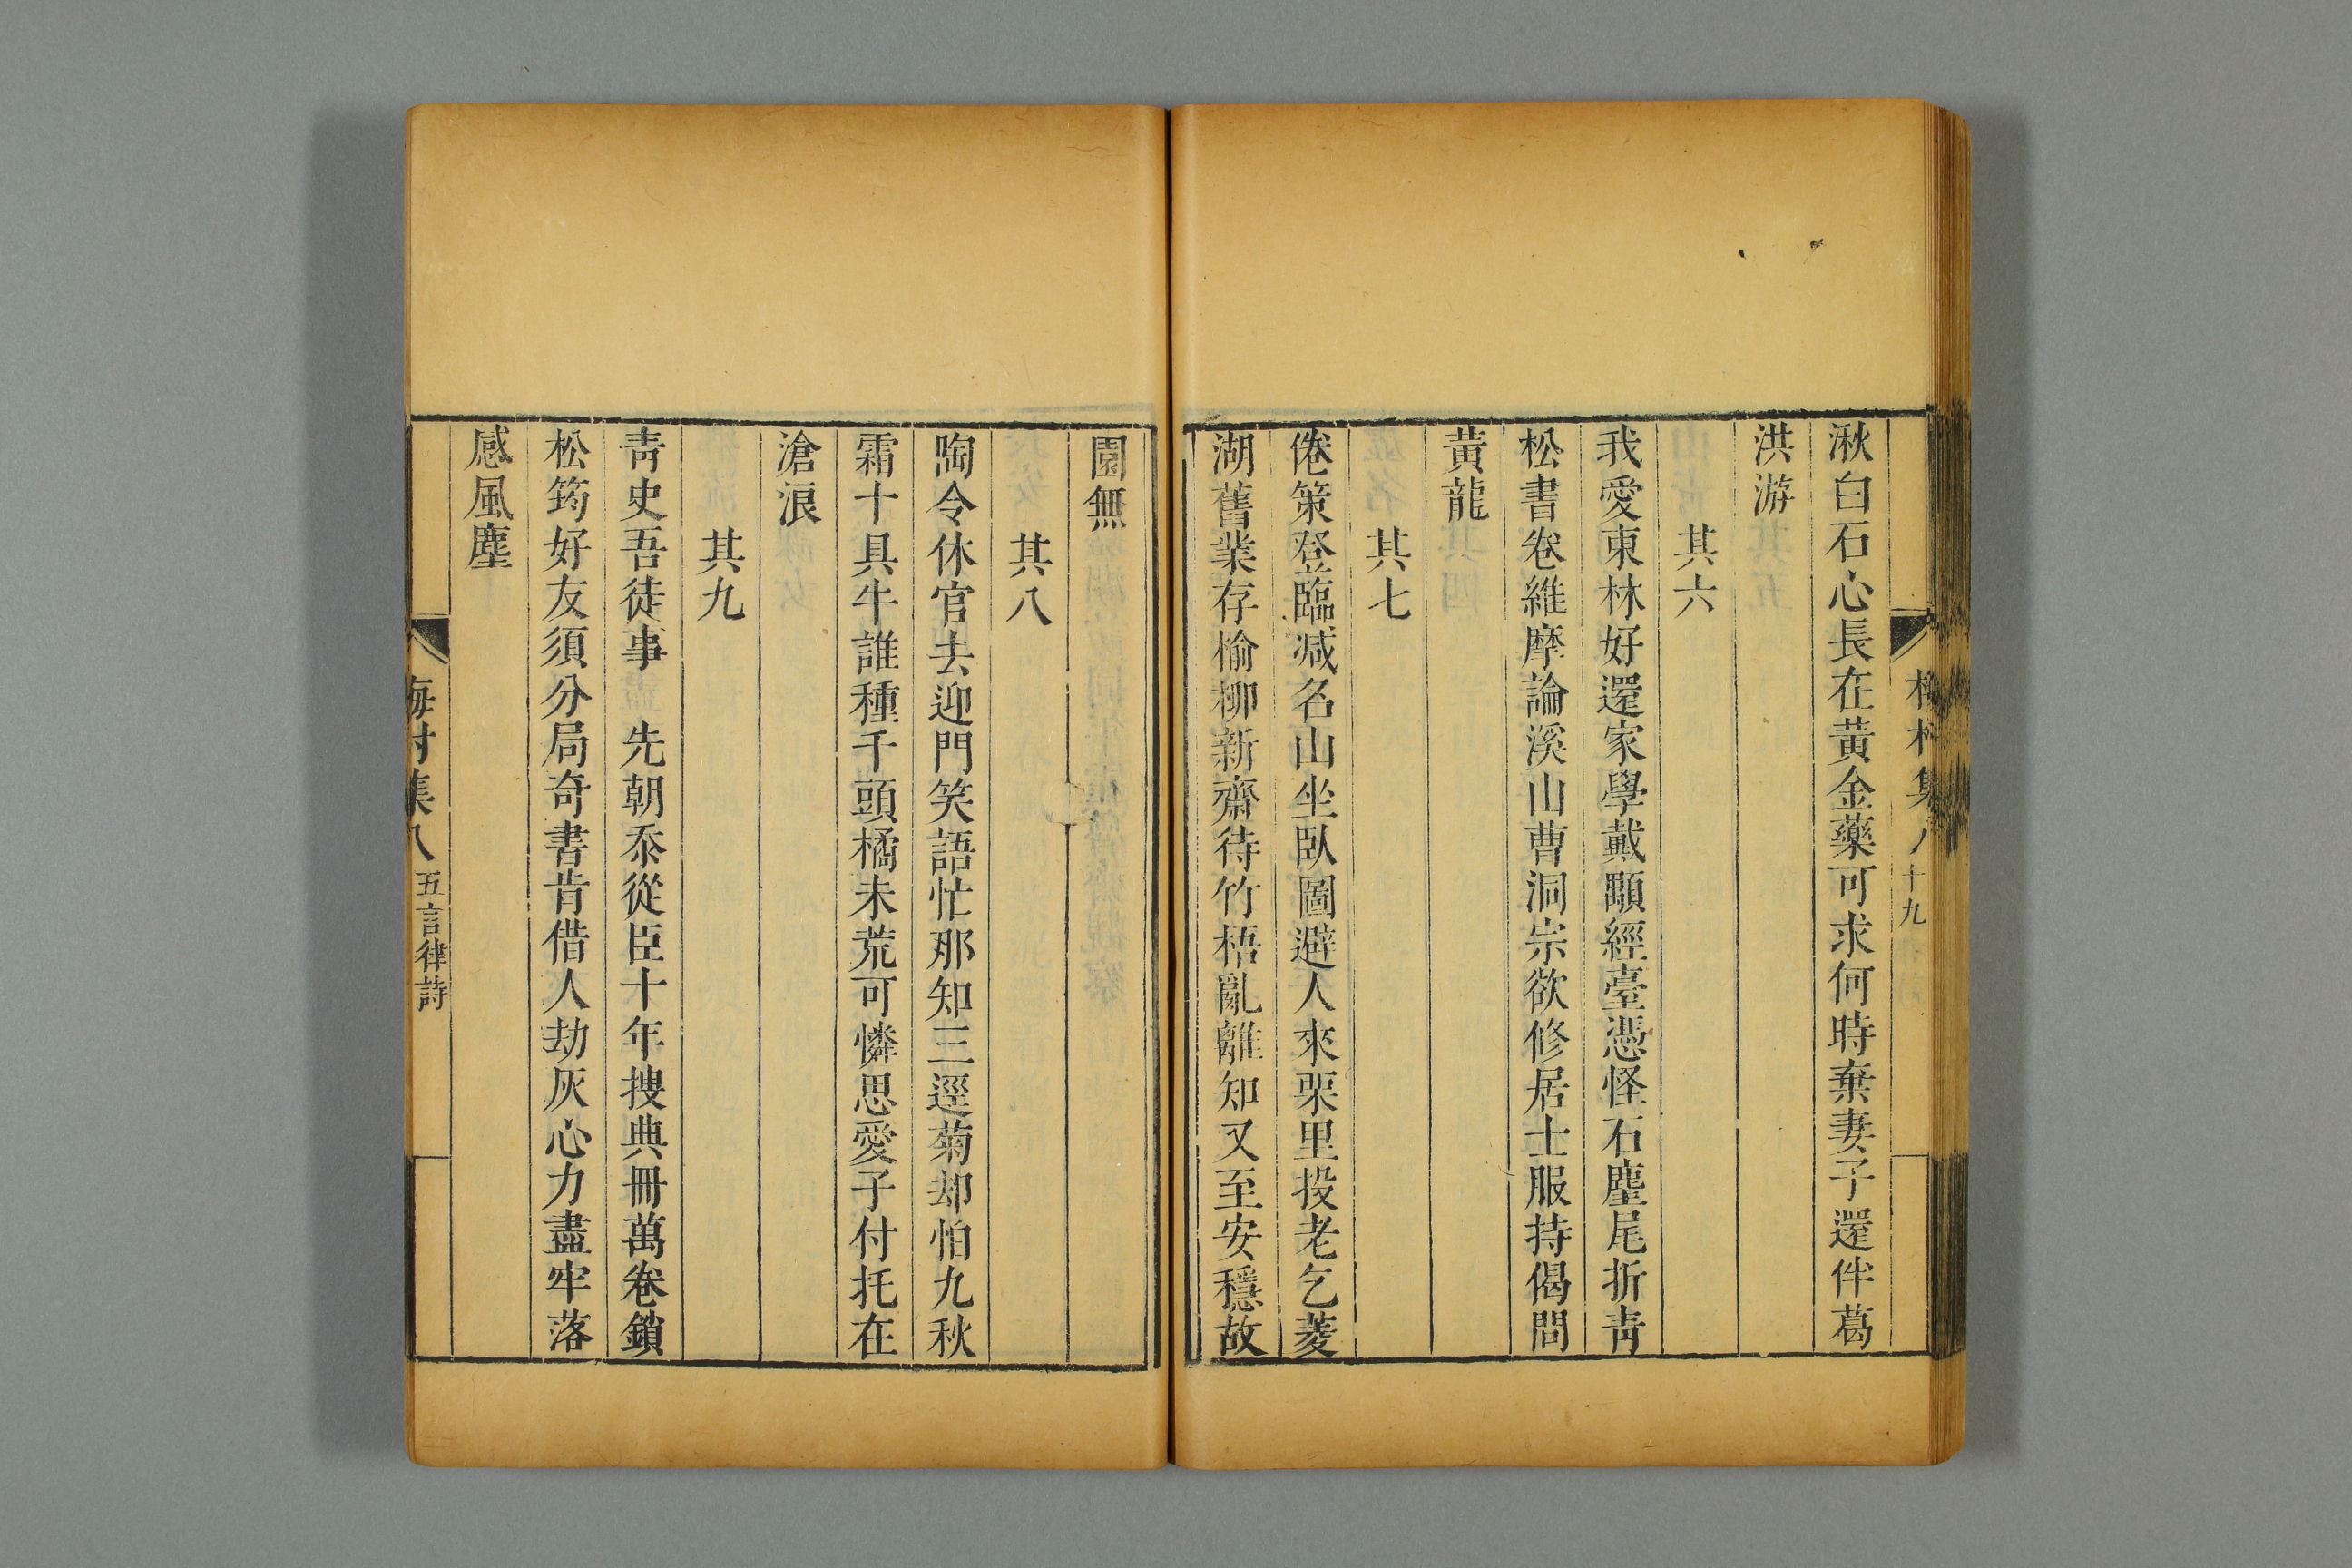 湫白石心長在黃金藥可求何時棄妻子還伴葛
洪游
其六
我愛東林好還家學戴顒經臺憑怪石麈尾折靑
松書卷維摩論溪山曹洞宗欲修居士服持偈問
黃龍
其七
倦策登臨減名山坐臥圖避人來栗里投老乞菱
湖舊業存榆柳新齋待竹梧亂離知又至安穩故
園無
其八
陶令休官去迎門笑語忙那知三逕菊却怕九秋
霜十具牛誰種千頭橘未荒可憐思愛子付托在
滄浪
其九
靑史吾徒事 先朝忝從臣十年搜典冊萬卷鎖
松筠好友須分局奇書肯借人劫灰心力盡牢落
感風塵
梅村集八 十九
梅村集八 五言律詩